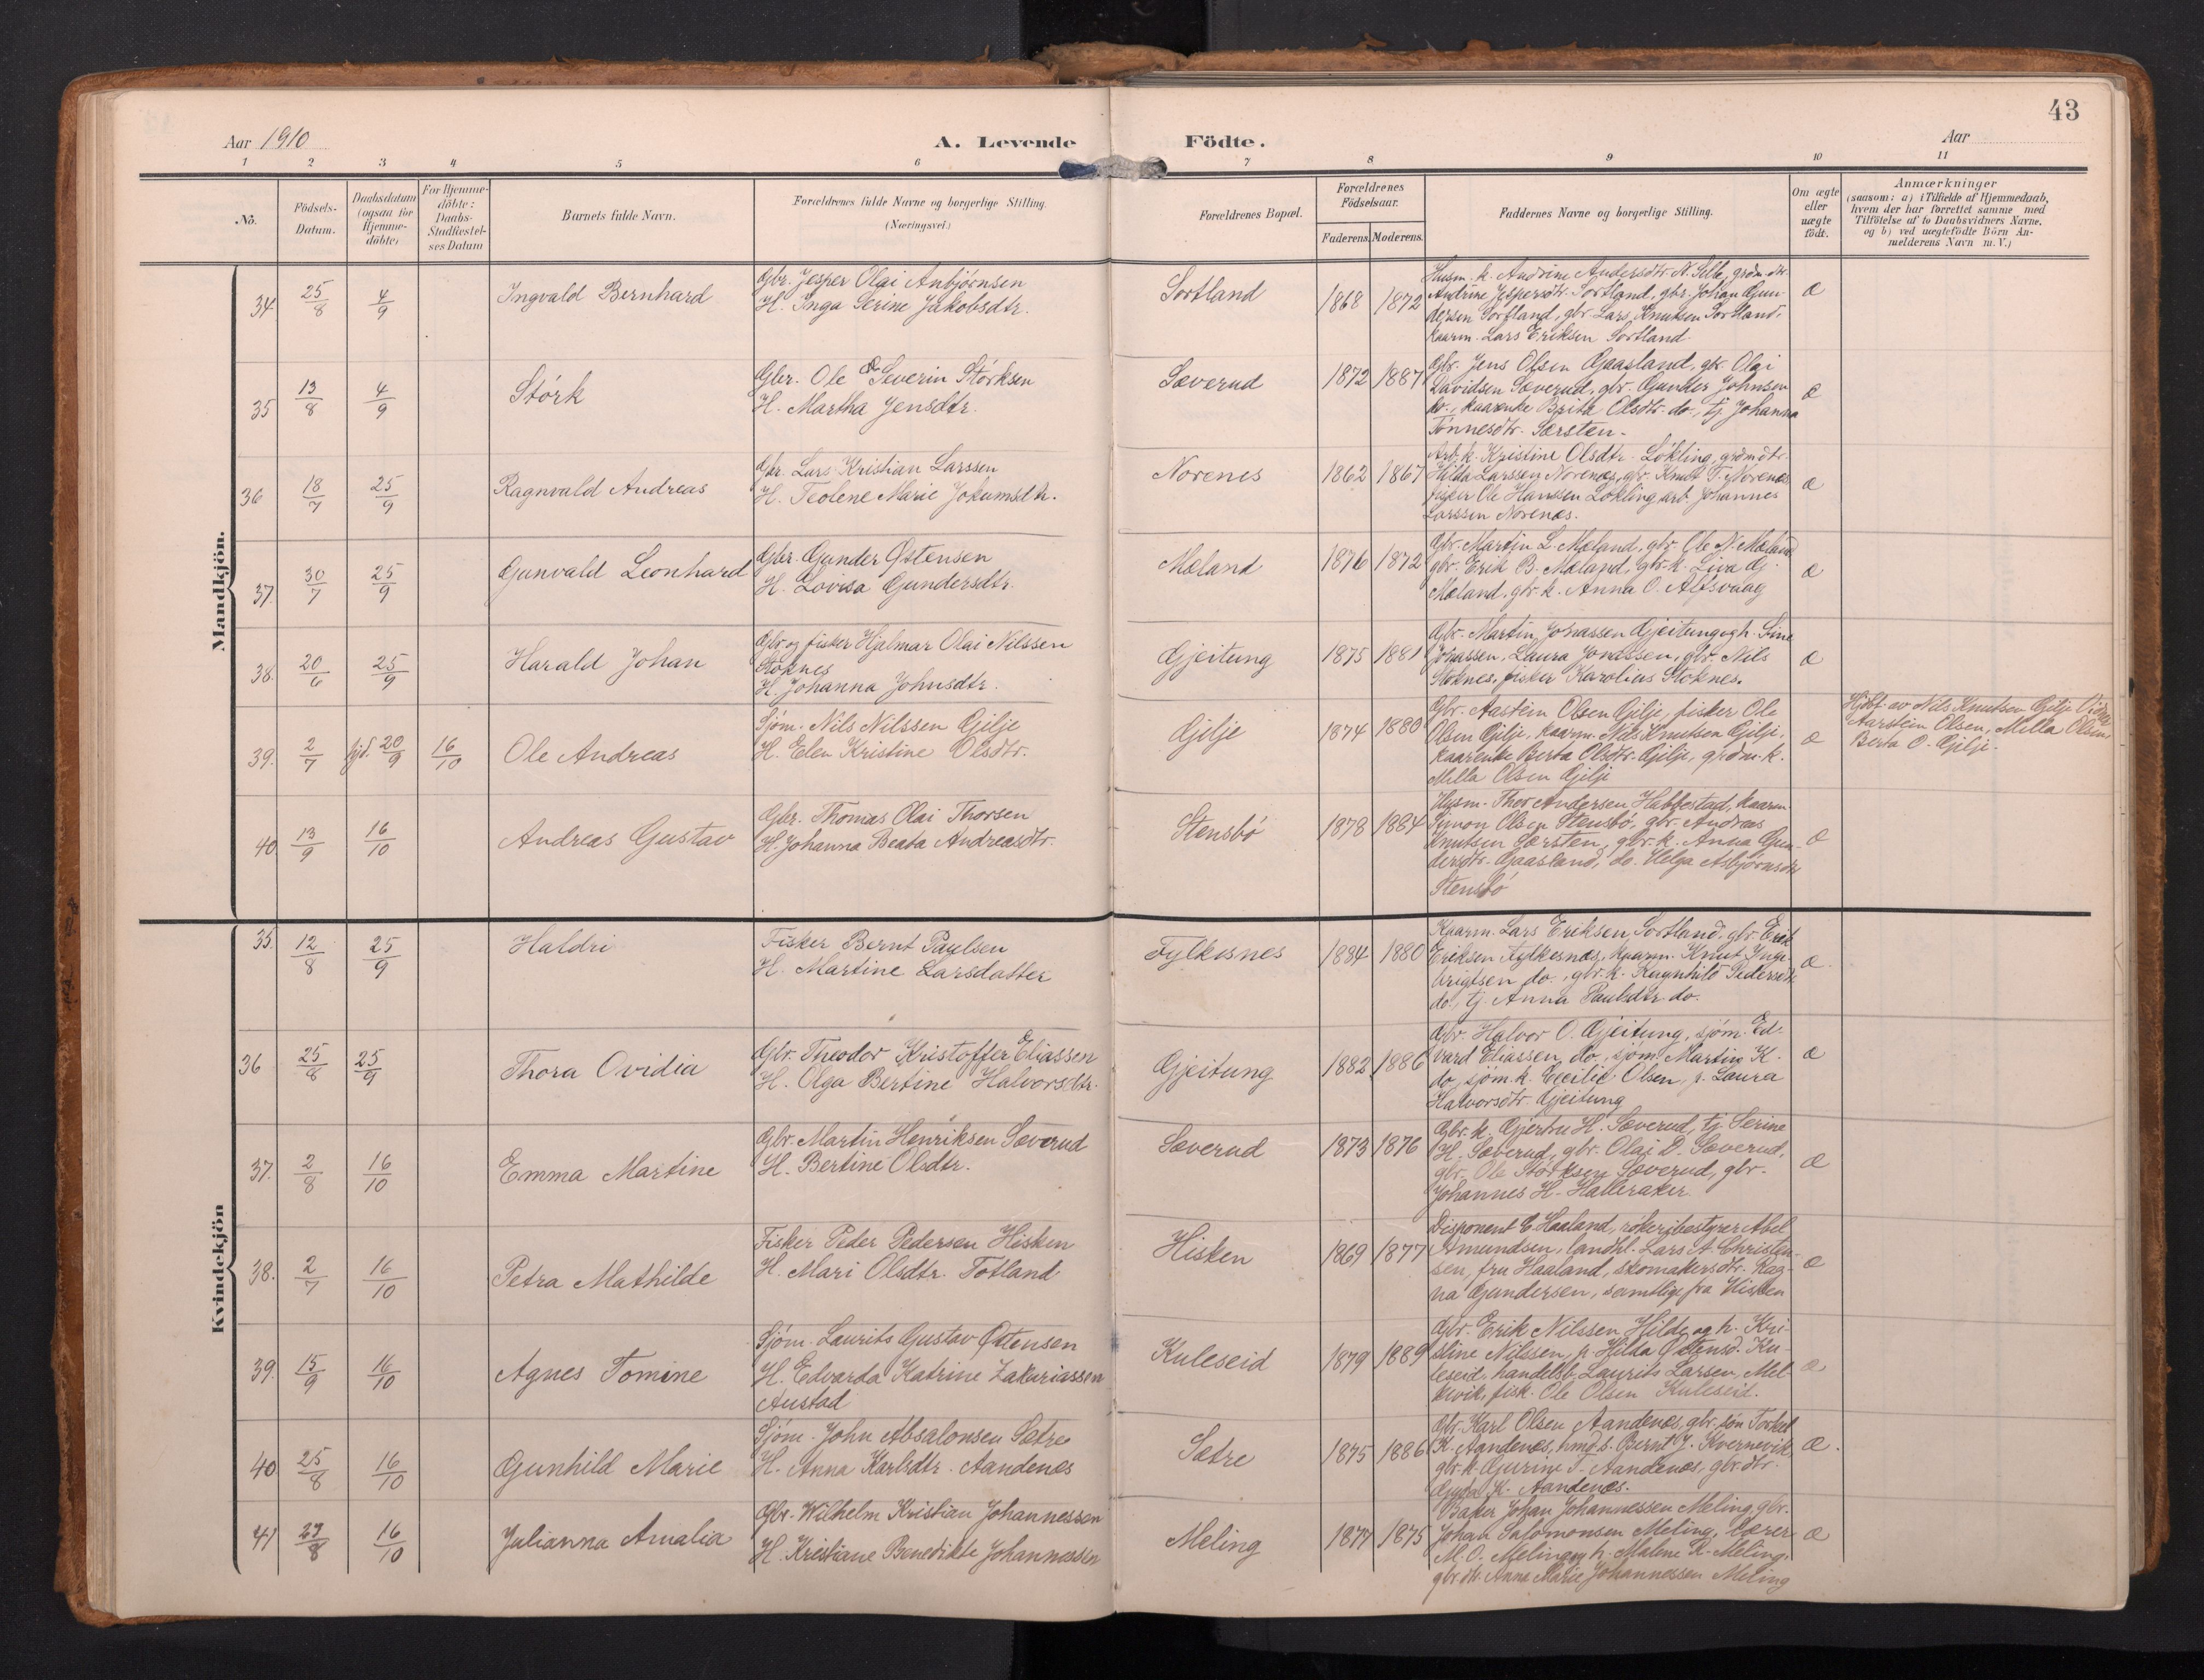 43
Aar 1910
A. Levende Födte.
Aar
1 2 3 4 5 6 7 8 9 10 11
No.
Födsels-Datum.
Daabsdatum (ogsaa for Hjemme-döbte)
For Hjemme-döbte: Daabs-Stadfæstel-ses Datum
Barnets fulde Navn.
Forældrenes fulde Navne og borgerlige Stilling. (Næringsvei.)
Forældrenes Bopæl.
Forældrenes Födselsaar.
Faderens. Moderens.
Faddernes Navne og borgerlige Stilling.
Om ægte eller uægte födt.
Anmærkninger
(saasom: a) i Tilfælde af Hjemmedaab,
hvem der har forrettet samme med
Tilföielse af to Daabsvidners Navne,
og b) ved uægtefödte Börn An-
melderens Navn m. V.)
Mandkjön.
34 25/8 4/9 Ingvald Bernhard
Gbr. Jesper Olai Anbjørnsen
H. Inga Serine Jakobsdtr.
Sortland 1868 1872
Husm. k. Andrine Andersdtr. N. Selle, grdm. dtr.
Andrine Jespersdtr. Sortland, gbr. Johan Gun-
dersen Sortland, gbr. Lars Knutsen Sortland,
kaarm. Lars Eriksen Sortland.
æ
35 13/8 4/9 Størk
Gbr. Ole Severin Størksen
H. Martha Jensdtr.
Sæverud 1872 1887
Gbr. Jens Olsen Gaasland, gbr. Olai
Davidsen Sæverud, gbr. Gunder Johnsen
do., kaarenke Brita Olsdtr. do., tj. Johanna
Tønnesdtr. Særsten.
æ
36 18/7 25/9 Ragnvald Andreas
Gbr. Lars Kristian Larssen
H. Teolene Marie Jokumsdtr.
Norenes 1862 1867
Arb. k. Kristine Olsdtr. Løkling, grdm dtr.
Hilda Larssen Norenæs, gbr. Knut T. Norenæs
fisker Ole Hanssen Løkling, arb. Johannes
Larssen Norenæs.
æ
37. 30/7 25/9 Gunvald Leonhard
Gbr. Gunder Østensen
H. Lovisa Gundersdtr.
Mæland 1876 1872
Gbr. Martin L. Mæland, gbr. Ole N. Mæland
gbr. Erik B. Mæland, gbr. k. Liva Gj.
Mæland, gbr. k. Anna O. Alfsvaag
æ
38. 20/6 25/9 Harald Johan
Gbr. og fisker Hjalmar Olai Nilssen
Stoknes
H. Johanna Johnsdtr.
Gjeitung 1875 1881
Gbr. Martin Jonassen Gjeitung og h. Sine
Jonassen, Laura Jonassen, gbr. Nils
Stoknes, fisker Karolius Stoknes.
æ
39. 2/7 hjd. 20/9 16/10 Ole Andreas
Sjøm. Nils Nilssen Gilje
H. Elen Kristine Olsdtr.
Gilje 1874 1880
Gbr. Aastein Olsen Gilje, fisker Ole
Olsen Gilje, kaarm. Nils Knutsen Gilje,
kaarenke Berta Olsdtr. Gilje, grdm. k.
Mella Olsen Gilje
æ
av Nils Knutsen Gilje
Aarstein Olsen, Mella Olsen,
Berta O. Gilje.
40. 13/9 16/10 Andreas Gustav
Gbr. Thomas Olai Thorsen
H. Johanna Beata Andreasdtr.
Stensbø 1878 1884
Husm. Thor Andersen Habbestad, kaarm.
Simon Olsen Stensbø, gbr. Andreas
Knutsen Særsten, gbr. k. Anna Gun-
dersdtr. Gaasland, do. Helga Asbjørnsdtr
Stensbø
æ
Kvindekjön
35. 12/8 25/9 Haldri
Fisker Bernt Paulsen
H. Martine Larsdatter
Fylkesnes 1884 1880
Kaarm. Lars Eriksen Sortland, gbr. Erik
Eriksen Fylkesnæs, kaarm. Knut Inge-
brigtsen do., gbr. k. Ragnhild Pedersdtr.
do., tj. Anna Paulsdtr. do.
æ
36 25/8 25/9 Thora Ovidia
Gbr. Theodor Kristoffer Eliassen
H. Olga Bertine Halvorsdtr.
Gjeitung 1882 1886
Gbr. Halvor O. Gjeitung, sjøm. Ed-
vard Eliassen, do., sjøm. Martin K.
do, sjøm. k. Cecilie Olsen, p. Laura
Halvorsdtr. Gjeitung
æ
37. 2/8 16/10 Emma Martine
Gbr. Martin Henriksen Sæverud
H. Bertine Olsdtr.
Sæverud 1873 1876
Gbr. k. Gjertru H. Sæverud, tj. Serine
H. Sæverud, gbr. Olai D. Sæverud,
gbr. Ole Størksen Sæverud, gbr.
Johannes H. Halleraker
æ
38. 2/7 16/10 Petra Mathilde
Fisker Peder Pedersen Hisken
H. Mari Olsdtr. Totland
Hisken 1869 1877
Disponent E. Haaland, røkeribestyrer Abel
Amundsen, landhl. Lars A. Christen-
sen, fru Haaland, skomakersdtr. Rag-
na Gundersen, samtlige fra Hisken
æ
39. 15/9 16/10 Agnes Tomine
Sjøm. Laurits Gustav Østensen
H. Edvarda Katrine Zakariassen
Austad
Kuleseid 1879 1889
Gbr. Erik Nilssen Hilde og h. Kri-
stine Nilssen, p. Hilda Østensd. Ku-
leseid, handelsb. Laurits Larsen, Mel-
kevik, fisk. Ole Olsen Kuleseid.
æ
40 25/8 16/10 Gunhild Marie
Sjøm. John Absalonsen Sætre
H. Anna Karlsdtr. Aandenes
Sætre 1875 1886
Gbr. Karl Olsen Aandenæs, gbr. søn Torkel
K. Aandenæs, hmd. s. Bernt J. Kvernevik,
gbr. k. Gurine T. Aandenæs, gbr. dtr.
Gyda K. Aandenæs.
æ.
41 27/8 16/10 Julianna Amalia
Gbr. Wilhelm Kristian Johannessen
H. Kristiane Benedikte Johannessen
Meling 1877 1875
Baker Johan Johannessen Meling, gbr.
Johan Salomonsen Meling, lærer
M. O. Meling og h. Malene K. Meling,
gbr. dtr. Anna Marie Johannessen Meling
æ